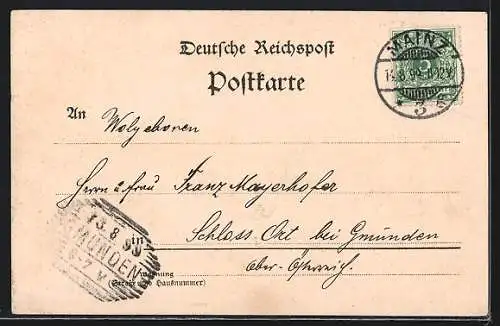 Deutsche Reichspost
Postkarte
MAINZ
3
An Wolgeboren
Herrn u. Frau Franz Mayerhofer
in Schloss Ort bei Gmunden
Ober-Österreich.
13 8 99
GMUNDEN
Wohnung
(Straße und Hausnummer)